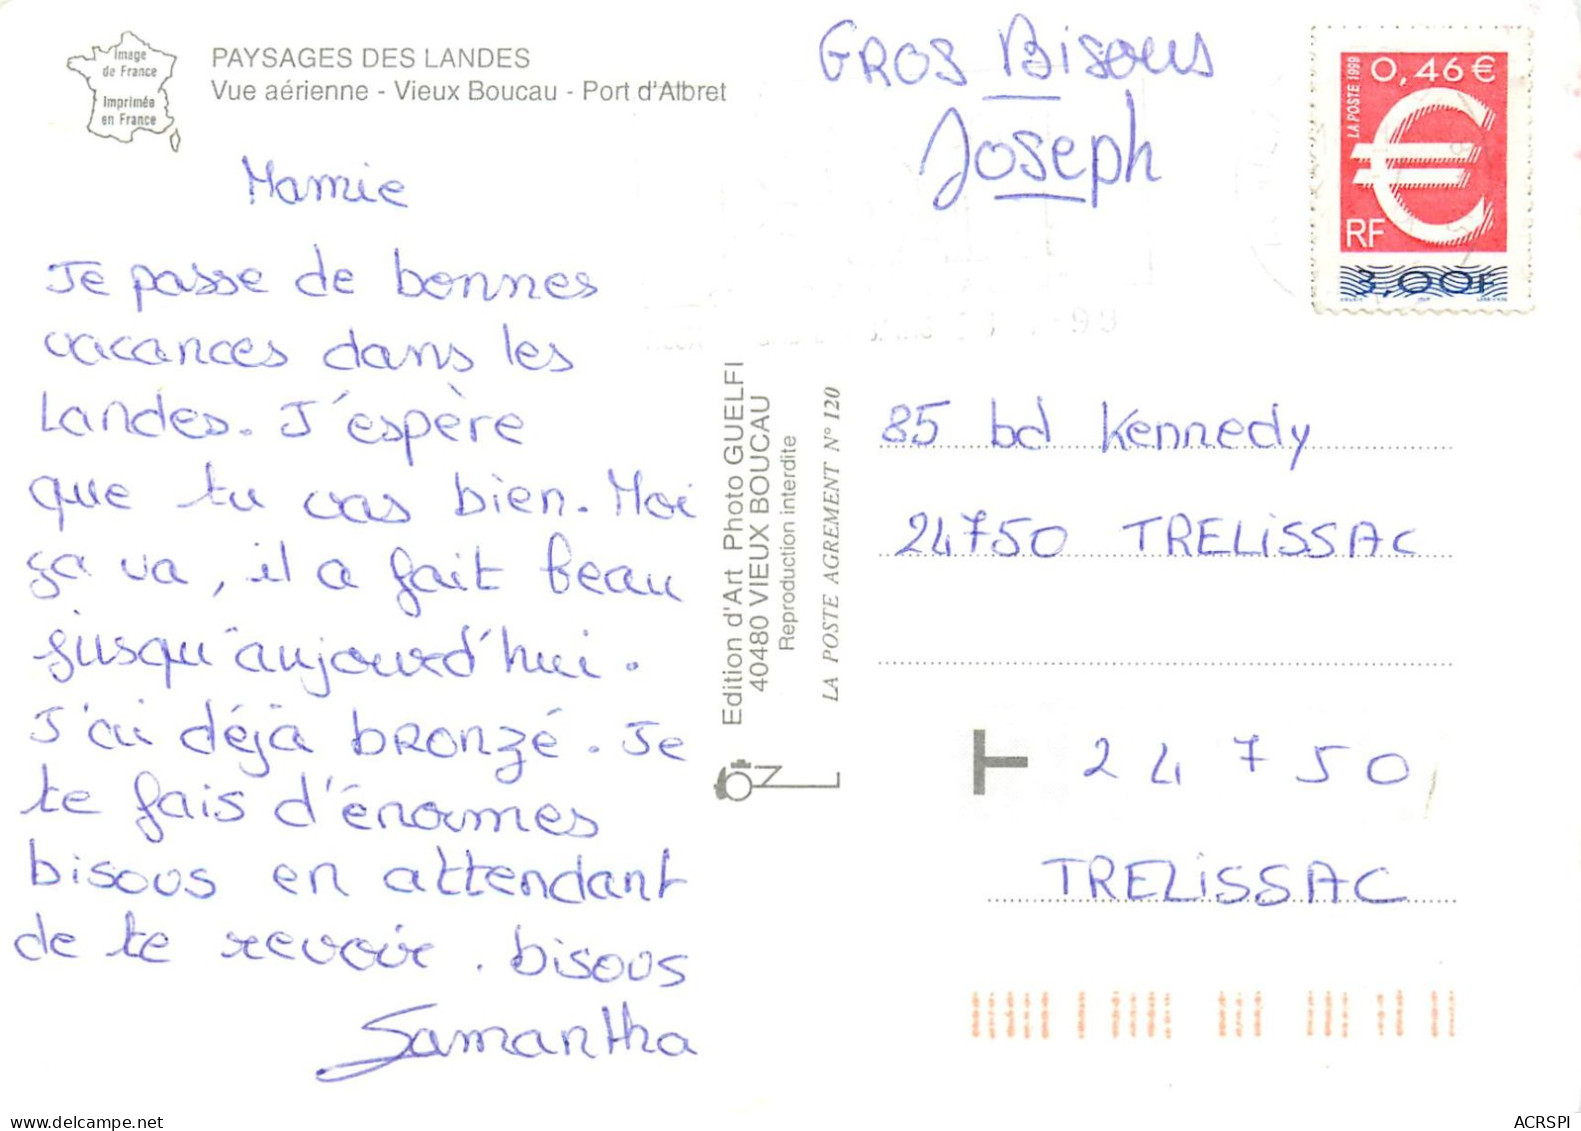 Image
de France
Imprimée
en France
PAYSAGES DES LANDES
Vue aérienne - Vieux Boucau - Port d'Albret
Mamie
Je passe de bonnes
vacances dans les
Landes. J'espère
que tu vas bien. Moi
ça va, il a fait beau
jusqu'aujourd'hui.
J'ai déjà bronzé. Je
te fais d'énormes
bisous en attendant
de te revoir. bisous
Samantha
GROS Bisous
Joseph
LA POSTE 1999
0,46 €
RF
3,00F
Edition d'Art Photo GUELFI
40480 VIEUX BOUCAU
Reproduction interdite
LA POSTE AGREMENT N° 120
85 bd Kennedy
24750 TRELiSSAC
24750
TRELiSSAC
ACRSPI